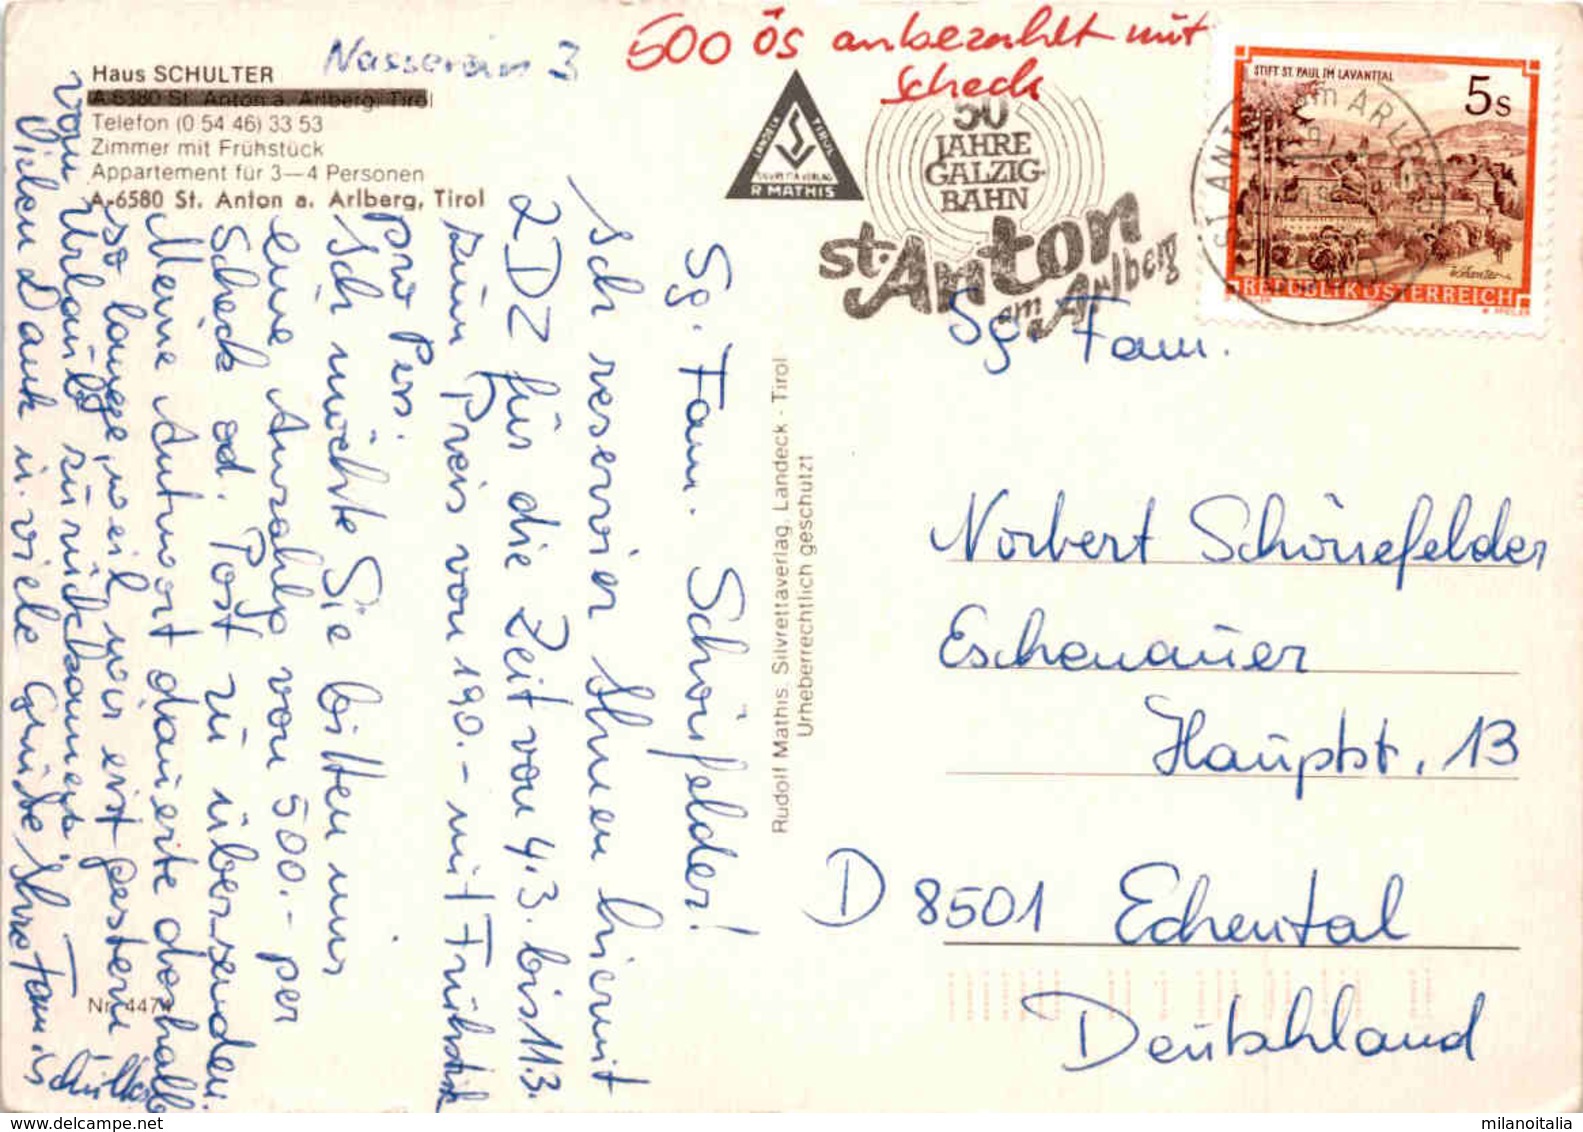 Haus SCHULTER
Nasserein 3
A-6380 St. Anton a. Arlberg, Tirol
Telefon (0 54 46) 33 53
Zimmer mit Frühstück
Appartement für 3—4 Personen
A-6580 St. Anton a. Arlberg, Tirol
500 ÖS anbezahlt mit
Scheck
LANDECK TIROL
SILVRETTAVERLAG
R. MATHIS
50
JAHRE
GALZIG-
BAHN
St. Anton
am Arlberg
ST. ANTON am ARLBERG
6580
STIFT ST. PAUL IM LAVANTTAL
5s
REPUBLIK ÖSTERREICH
Sg. Fam. Schönfelder!
Ich reservier Ihnen hiermit
2DZ für die Zeit von 4.3. bis 11.3.
zum Preis von 190.- mit Frühstück
pro Pers.
Ich möchte Sie bitten mir
eine Anzahlg von 500.- per
Scheck od. Post zu übersenden.
Meine Antwort dauerte deshalb
so lange, weil wir erst gestern
vom Urlaub zurückkamen.
Vielen Dank u. viele Grüße Ihre Familie
Schulter
Nr. 4474
Rudolf Mathis, Silvrettaverlag, Landeck - Tirol
Urheberrechtlich geschützt
Sg. Fam.
Norbert Schönefelder
Eschenauer
Hauptst. 13
D 8501 Echental
Deutschland
milanoitalia